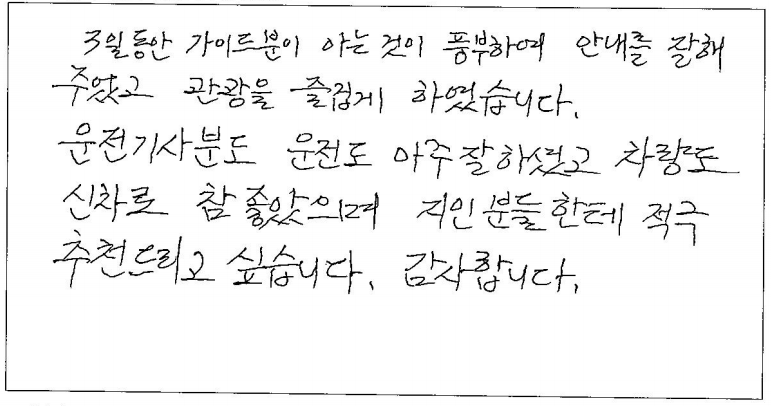 3일동안 가이드분이 아는 것이 풍부하며 안내를 잘해
주었고 관광을 즐겁게 하였습니다.
운전기사분도 운전도 아주잘하셨고 차량도
신차로 참 좋았으며 지인분들한테 적극
추천드리고 싶습니다. 감사합니다.